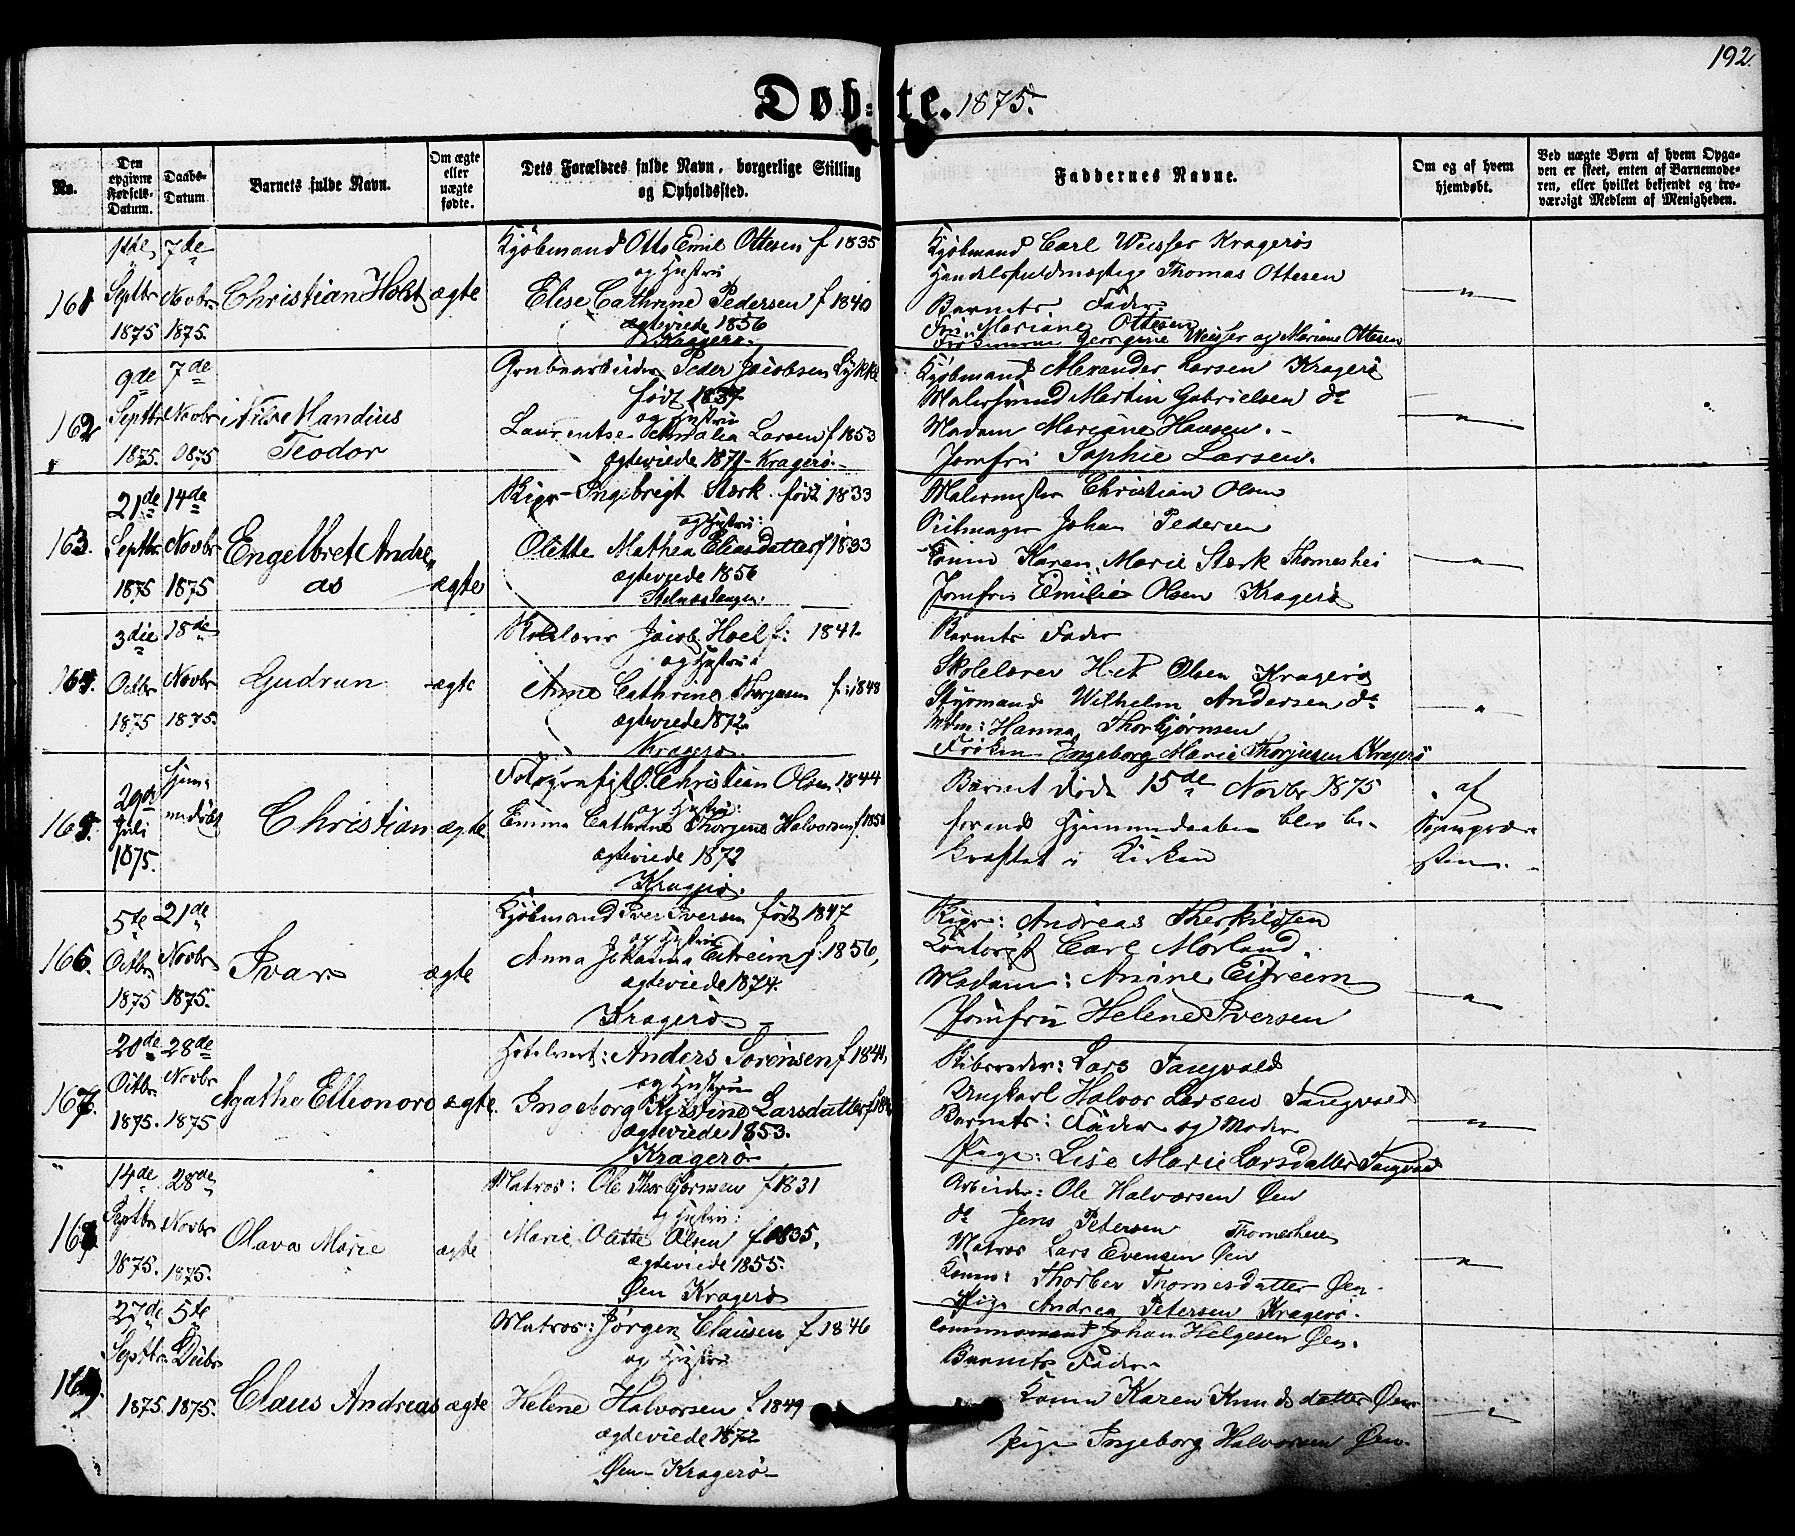 192.
Døb-te. 1875.
No.
Den opgivne Fødsels-Datum.
Daabs-Datum
Barnets fulde Navn.
Om ægte eller uægte fødte.
Dets Forældres fulde Navn, borgerlige Stilling og Opholdssted.
Faddernes Navne.
Om og af hvem hjemdøbt.
Ved uægte Børn af hvem Opga-
ven er skeet, enten af Barnemode-
ren, eller hvilket bekjendt og tro-
værdigt Medlem af Menigheden.
161 1ste Septbr 1875 7de Novbr 1875. Christian Holst ægte
Kjøbmand Otto Emil Ottesen f 1835
og Hustru
Elise Cathrine Pedersen f 1840
ægteviede 1856
Kragerø.
Kjøbmand Carl Wiesser Kragerøs
Handelsfuldmægtig Thomas Ottesen
Barnets Fader
Mariane Ottesen
Georgine Weisser og Mariane Ottesen
162 9de Septbr 1875. 7de Novbr 1875
Teodor
Grubearbeider Peder Jacobsen Lykke
født 1837
og Hustru
Larsen f 1853
ægteviede 1871 - Kragerø.
Kjøbmand Alexander Larsen Kragerø
Malersvend Martin Gabrielsen do
Madam Mariane Hansen.
Jomfru Sophie Larsen.
163. 21de Septbr 1875 14de Novbr 1875 Engelbret Andre,,
as ægte
Ingebrigt Stærk født 1833
og Hustru:
Olette Mathea Eliasdatter f 1833
ægteviede 1856
Malermester Christian Olsen
Seilmager Johan Pedersen
Konne Karen Marie Stærk Thomeshei
Jomfru Emilie Olsen Kragerø
164. 3die Octbr 1875 18de Novbr 1875. Gudrun ægte
Jacob Hoel f: 1841.
og Hustru
Anne Cathrine Thorjusen f: 1848
ægteviede 1872.
Kragerø.
Barnets Fader
Skolelærer Olsen Kragerø
Styrmand Wilhelm Andersen do
Mdm: Hanna Thorbjørnsen
Frøken Ingeborg Marie Thorjusen Kragerø
165. 29de Juli 1875. hjem-
medøbt Christian ægte
Fotografist O. Christian Olsen 1844
og Hustru:
Emma Cathrine Halvorsen f 1850
ægteviede 1872
Kragerø.
Barnet døde 15de Novbr 1875
forend Hjemmedaaben blev be-
kræftet i Kirken
af
Sognepræ-
sten.
166. 5te Octbr 1875 21de Novbr 1875. Ivar ægte
Kjøbmand Iver Iversen født 1847
og Hustru
Anna Johanna Eitreim f: 1856,
ægteviede 1874.
Kragerø
Andreas Therkildsen
Contorist Carl Morland.
Madam: Anine Eitreem
Jomfru Helene Iversen
167. 20de Octbr 1875. 28de Novbr 1875 Agathe Ellionore ægte.
Hotelvert: Anders Sørensen f 1844,
og Hustru
Ingeborg Kirstine Larsdatter
ægteviede 1853.
Kragerø
Skibsreder: Lars Tangvald
Ungkarl Halvor Larsen Tangvald
Barnets: Fader og Moder
Pige: Lise Marie Larsdatter Tangvald
168 14de Septbr 1875. 28de Novbr 1875. Olava Marie ægte
Matros: Ole Thorbjørnsen f 1831
og Hustru:
Marie Olette Olsen f 1835,
ægteviede 1855.
Øen Kragerø
Arbeider: Ole Halvorsen Øen
do Jens Petersen Thomeshei
Matros Lars Evensen Øen
Konne: Thorber Thomesdatter Øen.
Pige Andrea Petersen Kragerø.
169. 27de Septbr 1875. 5te Decbr 1875. Claus Andreas ægte
Matros: Jørgen Clausen f 1846
og Hustru
Helene Halvorsen f. 1849
ægteviede 1872
Øen - Kragerø
Johan Helgesen Øen.
Barnets Fader
Konne Karen Knudsdatter Øen
Pige Ingeborg Halvorsen Øen.